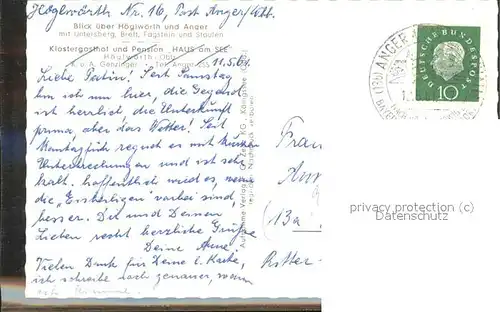 Höglwörth Nr. 16, Post Anger/Obb.
Blick über Höglwörth und Anger
mit Untersberg, Brett, Fagstein und Staufen
Klostergasthof und Pension „HAUS am SEE"
Höglwörth - Obb.
K. u. A. Genzinger - Tel. Anger 255
11.5.61.
Liebe Seit Samstag
bin ich nun hier, die Gegend
ist herrlich, die Unterkunft
prima, aber das Wetter! Seit
Montag früh regnet es mit kurzen
Unterbrechungen und ist sehr
kalt. Hoffentlich wird es, wenn
die „Eisheiligen" vorbei sind,
besser. Dir und Deinen
Lieben recht herzliche Grüße
Deine Anne.
Vielen Dank für Deine l. Karte,
ich schreibe noch genauer, wann
Frau
(13a
Ritter
DEUTSCHE BUNDESPOST
10
ANGER
privacy protection (c)
Datenschutz